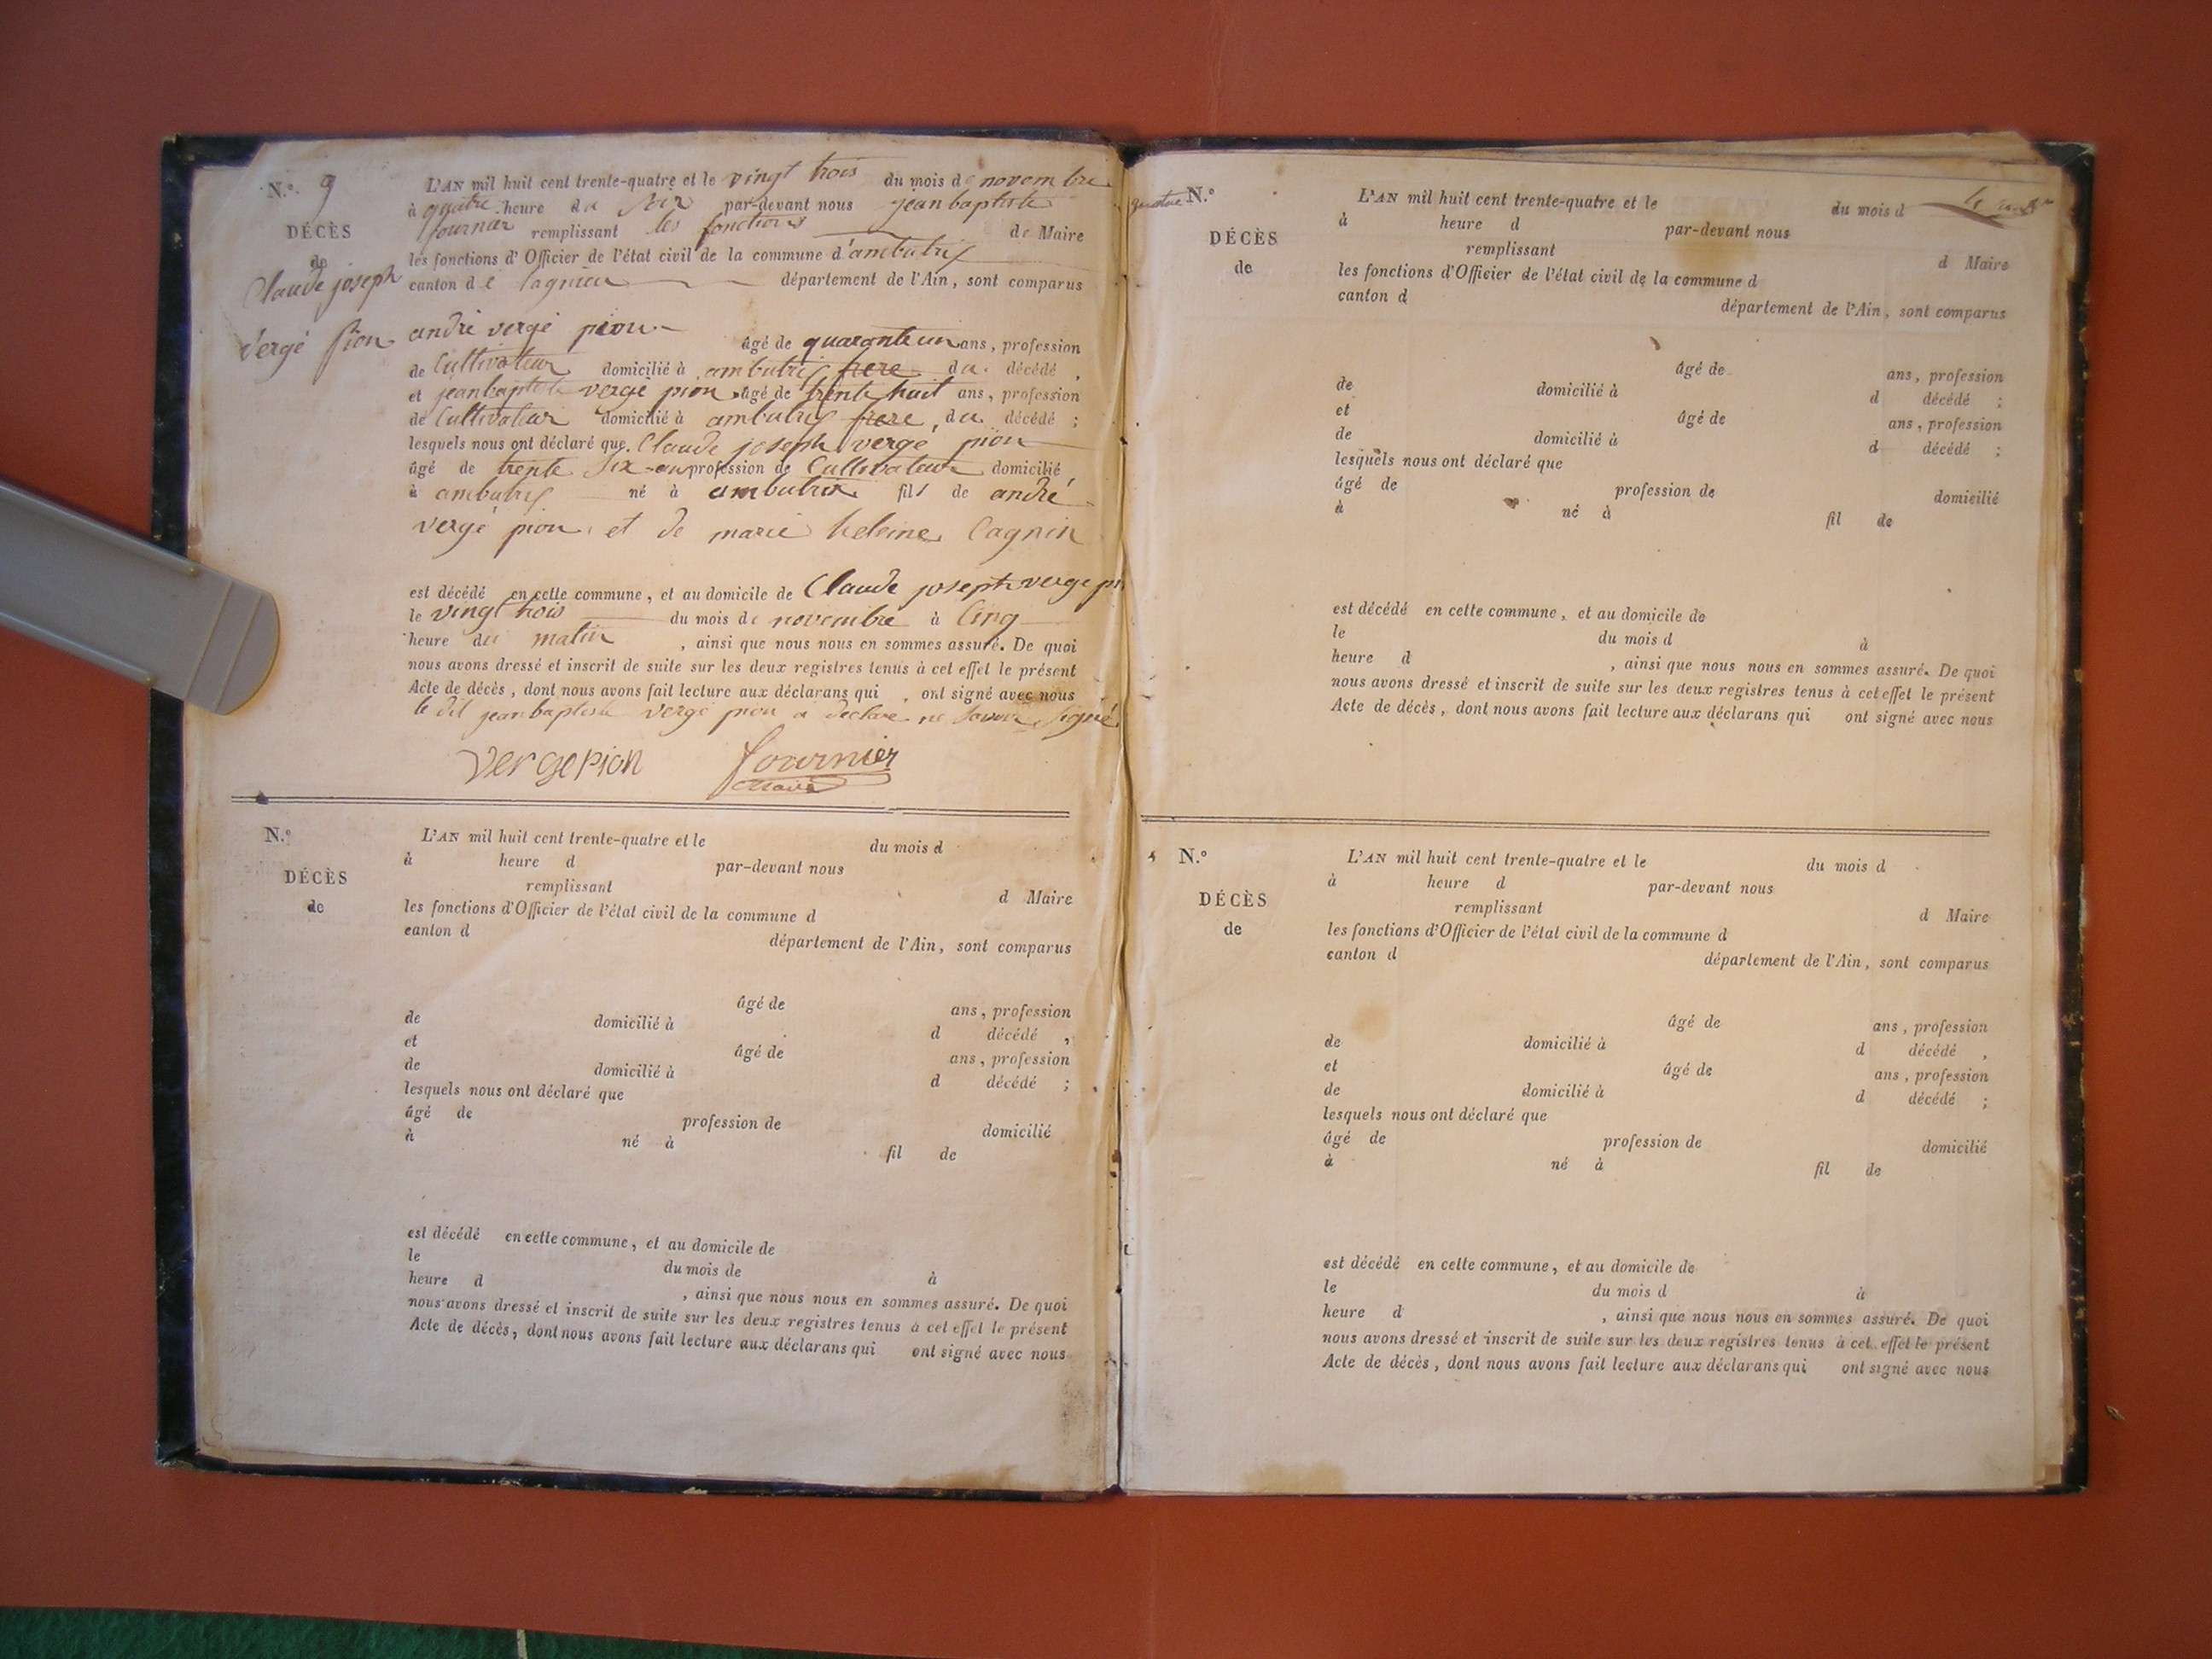 N.° 9
DÉCÈS
de
Claude joseph
Vergé pion
L'AN mil huit cent trente-quatre et le vingt trois du mois de novembre
à quatre heure du soir par-devant nous jean baptiste
fournier remplissant les fonctions de Maire
les fonctions d'Officier de l'état civil de la commune d'ambutrix
canton de lagnieu département de l'Ain, sont comparus
andré vergé pion âgé de quarante un ans, profession
de Cultivateur domicilié à ambutrix frere du décédé,
et jean baptiste vergé pion âgé de trente huit ans, profession
de Cultivateur domicilié à ambutrix frere du décédé ;
lesquels nous ont déclaré que Claude joseph vergé pion
âgé de trente six ans profession de Cultivateur domicilié
à ambutrix né à ambutrix fils de andré
vergé pion et de marie heleine Cagnin
est décédé en cette commune, et au domicile de Claude joseph verge pi
le vingt trois du mois de novembre à Cinq
heure du matin, ainsi que nous nous en sommes assuré. De quoi
nous avons dressé et inscrit de suite sur les deux registres tenus à cet effet le présent
Acte de décès, dont nous avons fait lecture aux déclarans qui ont signé avec nous
le dit jean baptiste vergé pion a declaré ne savoir signé
Vergepion fournier
maire
N.°
DÉCÈS
de
L'AN mil huit cent trente-quatre et le du mois d
à heure d par-devant nous
remplissant d Maire
les fonctions d'Officier de l'état civil de la commune d
canton d département de l'Ain, sont comparus
âgé de ans, profession
de domicilié à d décédé ,
et âgé de ans, profession
de domicilié à d décédé ;
lesquels nous ont déclaré que
âgé de profession de domicilié
à né à fil de
est décédé en cette commune, et au domicile de
le du mois de à
heure d , ainsi que nous nous en sommes assuré. De quoi
nous avons dressé et inscrit de suite sur les deux registres tenus à cet effet le présent
Acte de décès, dont nous avons fait lecture aux déclarans qui ont signé avec nous
quatre
N.°
DÉCÈS
de
L'AN mil huit cent trente-quatre et le du mois d
à heure d par-devant nous
remplissant d Maire
les fonctions d'Officier de l'état civil de la commune d
canton d département de l'Ain, sont comparus
âgé de ans, profession
de domicilié à d décédé ;
et âgé de ans, profession
de domicilié à d décédé ;
lesquels nous ont déclaré que
âgé de profession de domicilié
à né à fil de
est décédé en cette commune, et au domicile de
le du mois d à
heure d , ainsi que nous nous en sommes assuré. De quoi
nous avons dressé et inscrit de suite sur les deux registres tenus à cet effet le présent
Acte de décès, dont nous avons fait lecture aux déclarans qui ont signé avec nous
N.°
DÉCÈS
de
L'AN mil huit cent trente-quatre et le du mois d
à heure d par-devant nous
remplissant d Maire
les fonctions d'Officier de l'état civil de la commune d
canton d département de l'Ain, sont comparus
âgé de ans, profession
de domicilié à d décédé ,
et âgé de ans, profession
de domicilié à d décédé ;
lesquels nous ont déclaré que
âgé de profession de domicilié
à né à fil de
est décédé en cette commune, et au domicile de
le du mois d à
heure d , ainsi que nous nous en sommes assuré. De quoi
nous avons dressé et inscrit de suite sur les deux registres tenus à cet effet le présent
Acte de décès, dont nous avons fait lecture aux déclarans qui ont signé avec nous